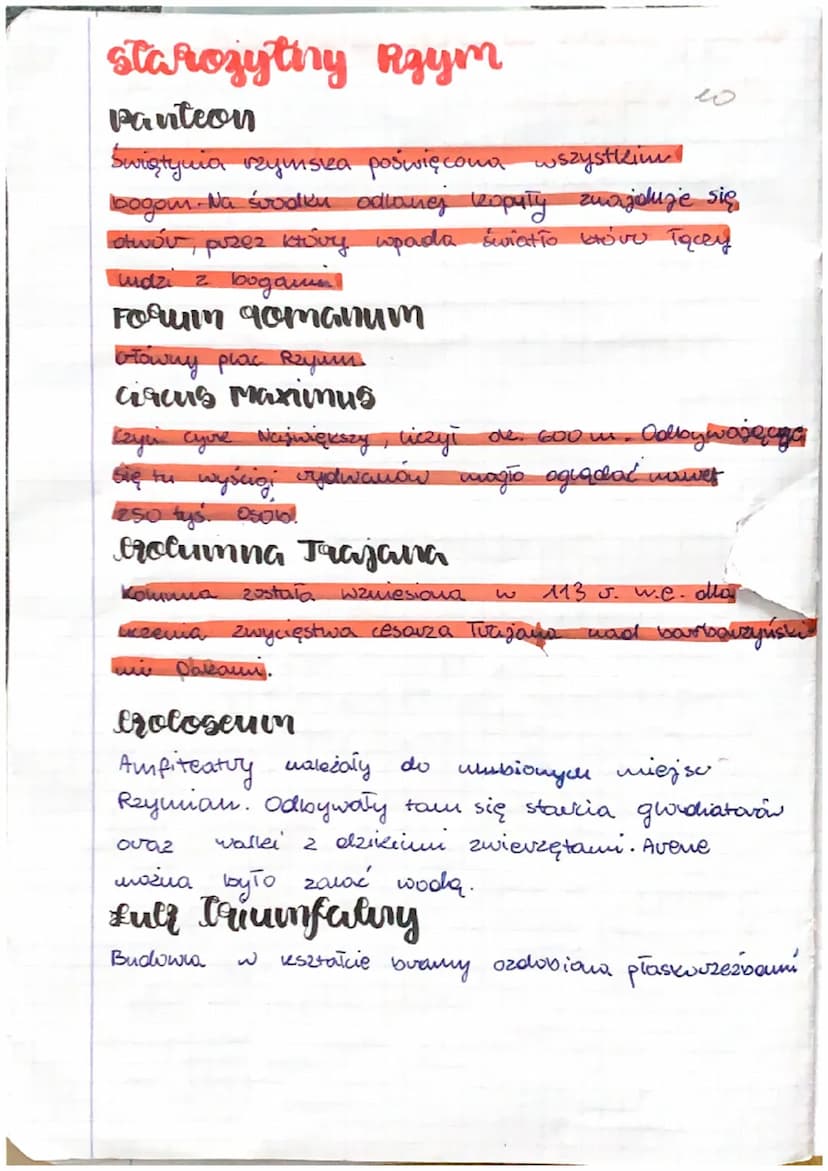 Starożytny Rzym
Panteon
Świątynia rzymska poświęcona wszystkim
bogom. Na środku odlanej kopuły znajduje się
otwór, przez który wpada światło które łączy
ludzi z bogami
Forum Romanum
Główny plac Rzymu.
Circus Maximus
Czyli cyrk Największy, liczył ok. 600 m. Odbywającąa
się tu wyścigi rydwanów mogło oglądać nawet
250 tyś. osób.
Kolumna Trajana
Kolumna została wzniesiona w 113 r. w.e. dla
uczenia zwycięstwa cesarza Trajana nad barbarzyński
mi Dakami.
Koloseum
Amfiteatry należały do ulubionych miejsc
Rzymian. Odbywały tam się starcia gladiatorów
oraz walki z dzikimi zwierzętami. Arene
można było zalać wodą.
Łuk Triumfalny
Budowla w kształcie bramy ozdobiona płaskorzeźbami